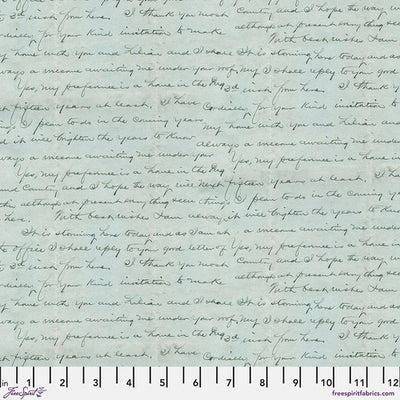 3d. wish from here. I thank you most County and I hope the way
cordially for your kind invitation to make although at present everything see
With best wishes I am
my home with you and Lilian and I share It is storming here today and as
always a welcome awaiting me under your roof, My I shall reply to your good
Yes, my preference is a home in the 3d I thank y
next fifteen years at least. I have Cordially for your kind invitation to
things I plan to do in the coming years my home with you and Lilian and
and it will brighten the years to know always a welcome awaiting me under your
Yes, my preference is a home in the
and County and I hope the way will next fifteen years at least. I h
this although at present everything seem things I plan to do in the coming
here. With best wishes I am and it will brighten the years to
It is storming here today and as I am at always a welcome awaiting me under
to office I shall reply to your good letter of Yes, my preference is a home in
3d. wish from here. I thank you most County and I hope the way
cordially for your kind invitation to make although at present everything see
With best wishes I am
my home with you and Lilian and I share It is storming here today and as
always a welcome awaiting me under your roof, My I shall reply to your good
Yes, my preference is a home in the 3d I thank y
next fifteen years at least. I have Cordially for your kind invitation to
in 1 2 3 4 5 6 7 8 9 10 11 12
FreeSpirit
freespiritfabrics.com